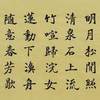 明月松間照
清泉石上流
竹喧歸浣女
蓮動下漁舟
隨意春芳歇